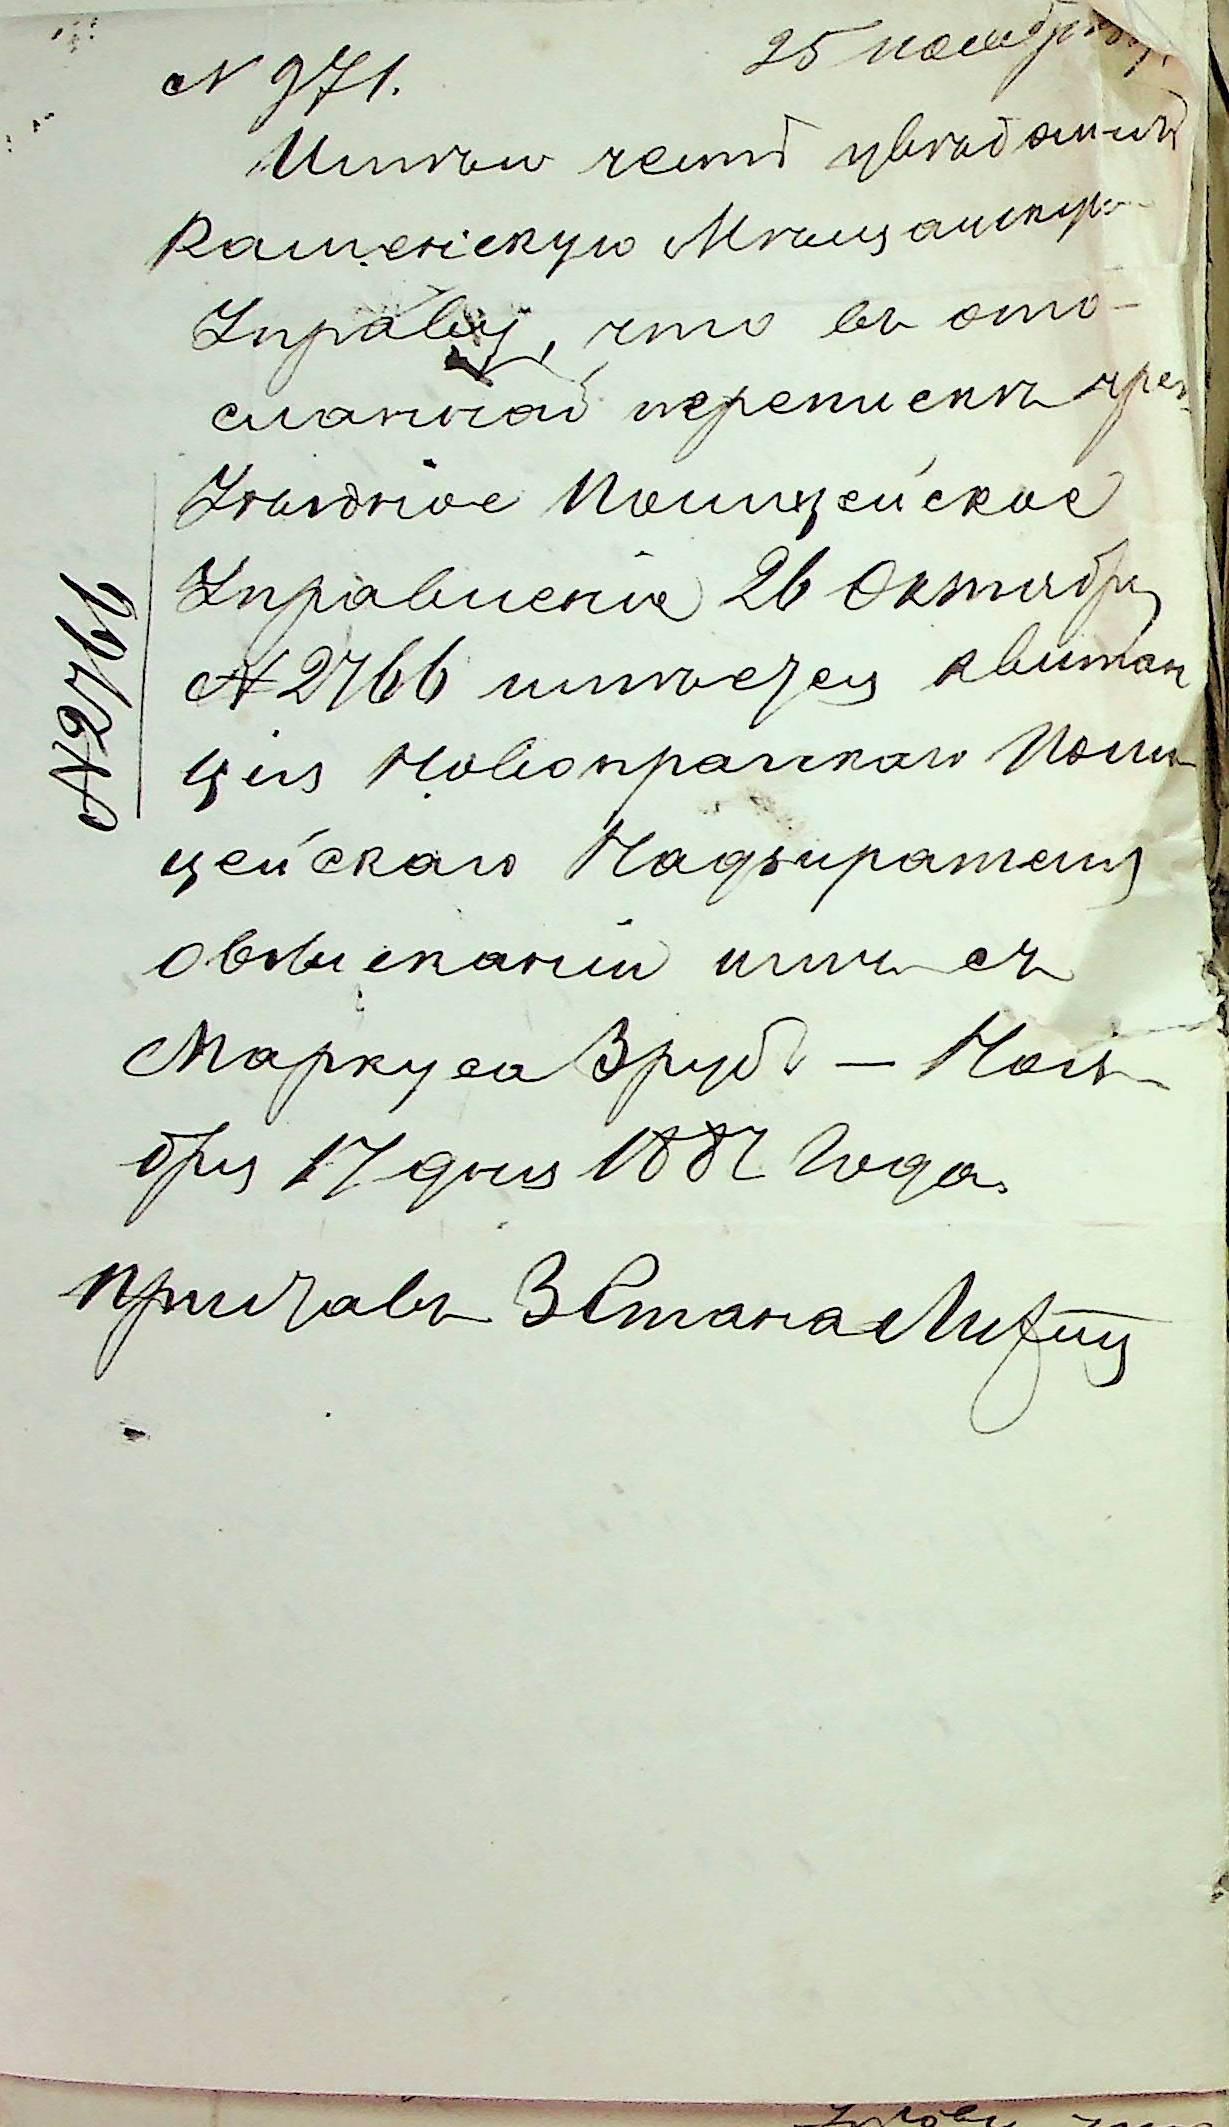 25 ноября
N 971.
Имѣю честь увѣдомить
Каменскую Мѣщанскую
Управу, что въ ото-
сланной перепискѣ чрез
Уѣздное Полицейское
Управленіе 26 Октября
N 2766 имѣется квитан
ція Новопражскаго Поли
цейскаго Надзирателя
о взысканіи имъ съ
Маркуса 3 руб — Ноя
бря 17 дня 1887 года.
Приставъ 3 Стана
N 2766